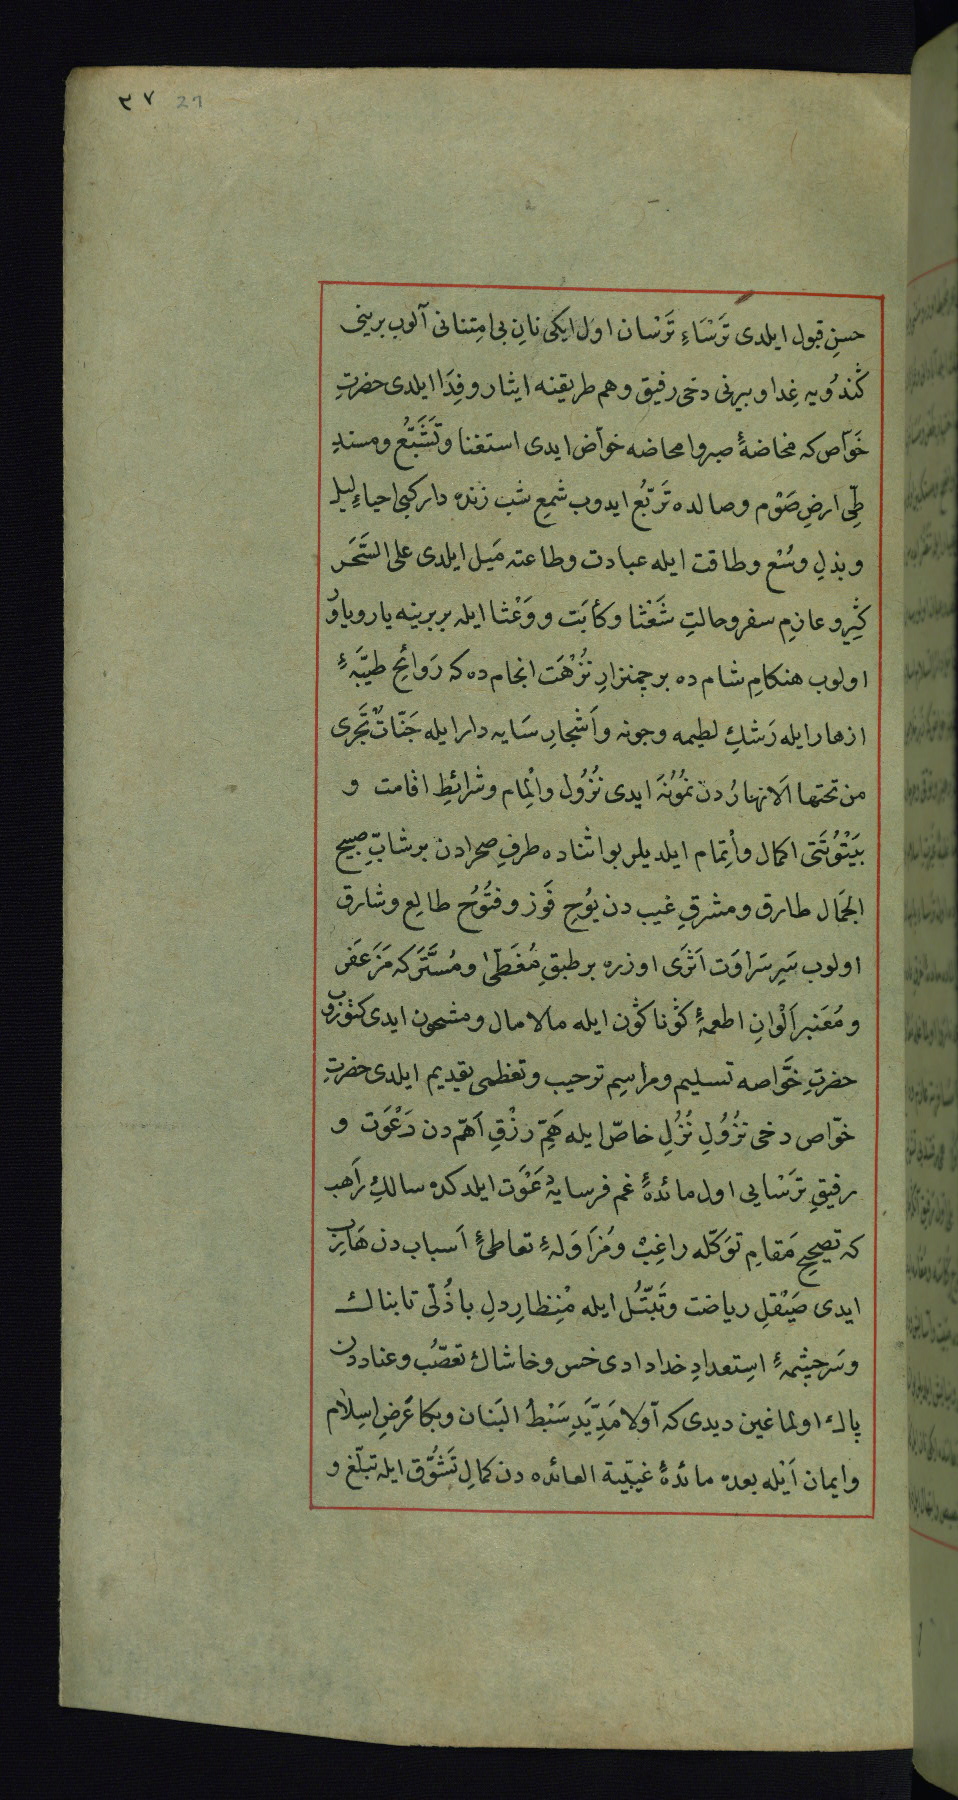 ٢٧ 27
حسنِ قبول ايلدى تَرْسَاءِ تَرْسان اول ايكى نانِ بى امِتنانى آلوب برينى
كَندُويه غِدا وبيرنى دخى رفيق وهم طريقنه ايثار وفِدَا ايلدى حضرتِ
خَوّاص كه مخاضۀ صبر وامحاضه خوّاض ايدى استغنا وتَشَبُّع ومسندِ
طىِّ ارضِ صَوْم وصالده تَربُّع ايدوب شمعِ شب زنده دار كبى احياءِ ليل
وبذلِ وسْع وطاقت ايله عبادت وطاعته مَيل ايلدى على السَّحَر
كثِيرو عازِم سفر وحالتِ شَعْثا وكأبَت ووَعْثا ايله بربرينه يار وياوُر
اولوب هنكامِ شام ده بر چمنزارِ نُزْهَت انجام ده كه رَوائحِ طيّبَۀ
ازهار ايله رَشكِ لطيمه وجونه واَشْجارِ سَايه دار ايله جَنّاتٌ تَجَرى
من تحتها اَلانهارُ دن نمُوُنَه ايدى نُزُول واِلْمام وشرائطِ اقامت و
بَيْتُوتَتى اكمال واِتمام ايلديلر بو اثناده طرفِ صحرادن بر شابِّ صبيح
الجَمَال طارق ومشرقِ غيب دن يُوحِ فَوز وفتُوُح طالع وشارق
اولوب سَيرِ سَراوَت اَثَرَى اوزره بر طبقِ مُغَطّىٰ ومُسَتَّر كه مَزَعفَر
ومُعَنبر اَلْوانِ اطعمۀ كوناكون ايله مالامال ومشحون ايدى كتوروب
حضرتِ خَوّاصه تسليم ومراسِم ترحيب وتعظمى تقديم ايلدى حضرتِ
خوّاص دخى نُزُولِ نُزُلِ خاصّ ايله هَمِّ رزْقِ اَهَمّ دن دَعْوَت و
رفيقِ تَرْسايى اول مائدۀ غم فرسايه دَعْوَت ايلدكده سالكِ رَاهب
كه تصحيحِ مَقامِ توَكّله راغِبْ ومُزَاوَلۀ تعاطىِٔ اَسباب دن هَارِب
ايدى صَيْقلِ رياضت وتَبَتُّل ايله مْنِظارِ دلِ باذُلّى تابناك
وسَرچشِمۀ اسِتعدادِ خداداادى خس وخاشاك تعصّب وعناددن
پاك اولماغين ديدى كه آوّلا مَدِّ يَدِ سَبْطُ البَنان وبكا عَرَضِ اسِلام
وايمان اَيْله بعده مائدۀ غيبّية العائده دن كمالِ تَشُوُّق ايله تبلّغ و